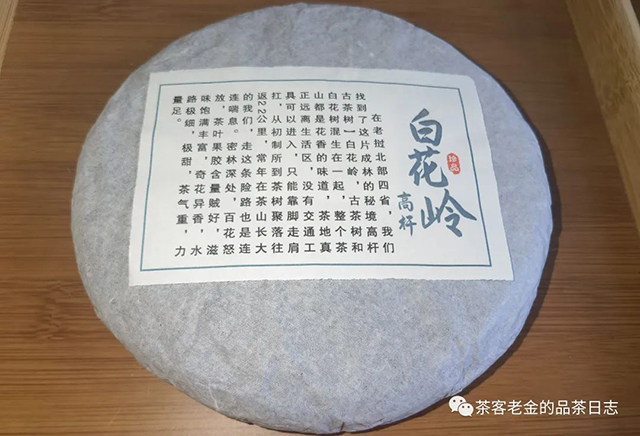 白花岭
珍品
高杆
在老挝北部四省，我们
找到了这片成林的秘境高杆
古茶树一白花岭，古茶树和
白花树混生在一起，整个茶
山都是花香的味道，茶地真
正远离生活区，没有交通工
具可以进入，只能靠脚走肩
扛，从初制所到茶树聚落往
返22公里，常年在茶山长大
的我们，走这条险路也是连
连喘息。密林深处，百花怒
放，茶叶果胶含量贼好，滋
味饱满丰富，奇花异香，水
路极细，极甜，茶气重，力
量足。
茶客老金的品茶日志